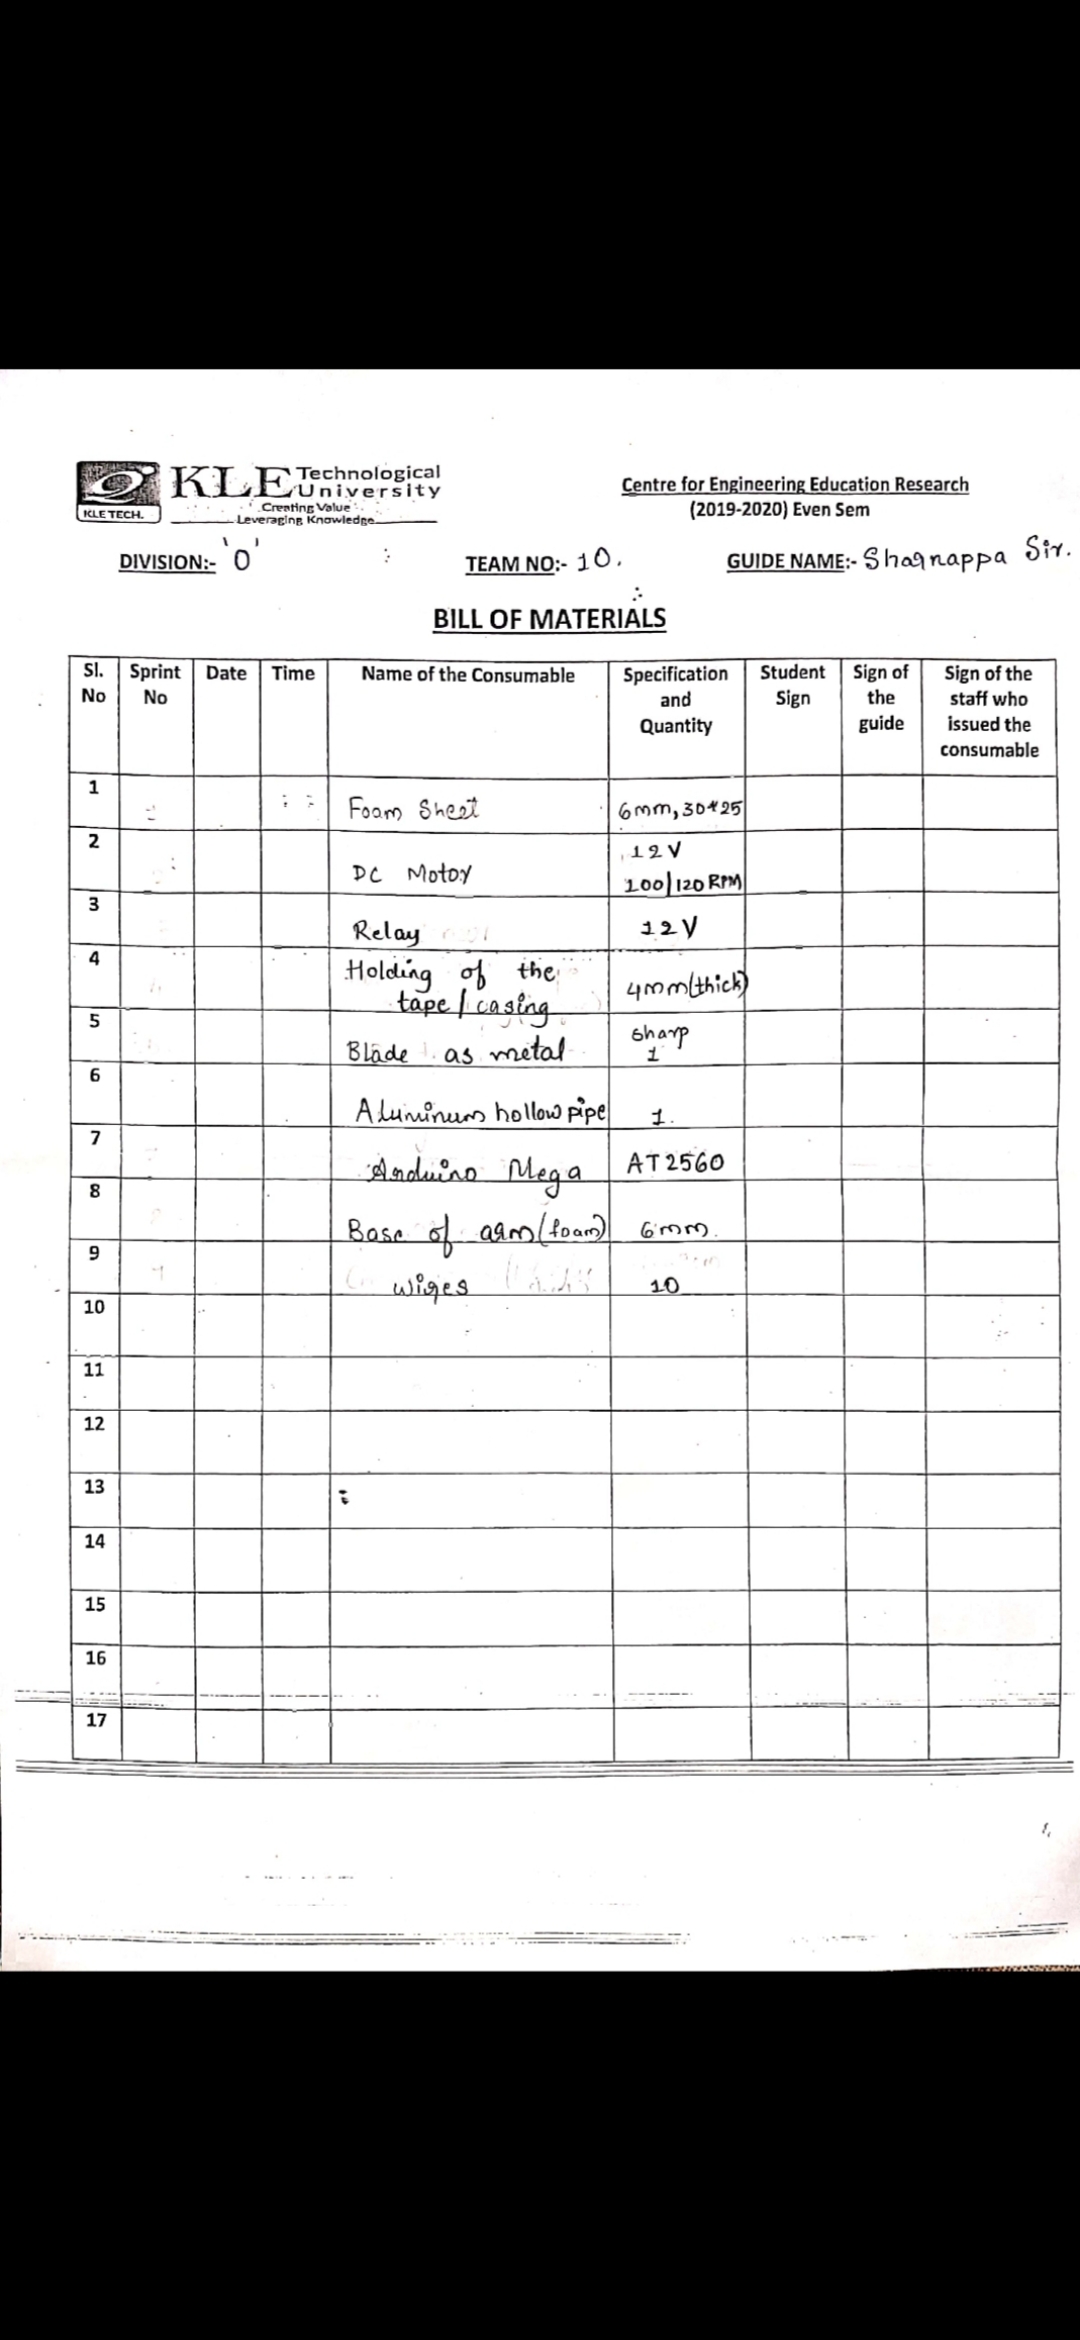 KLE Technological
University
Creating Value
Leveraging Knowledge
KLE TECH.
Centre for Engineering Education Research
(2019-2020) Even Sem
DIVISION:- 'O' TEAM NO:- 10. GUIDE NAME:- Sharnappa Sir.
BILL OF MATERIALS
Sl. No Sprint No Date Time Name of the Consumable Specification and Quantity Student Sign Sign of the guide Sign of the staff who issued the consumable
1 Foam Sheet 6mm, 30*25
2 DC Motor 12V 100/120 RPM
3 Relay 12V
4 Holding of the tape/casing 4mm(thick)
5 Blade as metal sharp 1
6 Aluminum hollow pipe 1.
7 Arduino Mega AT2560
8 Base of arm(foam) 6mm.
9 wires 10
10
11
12
13
14
15
16
17